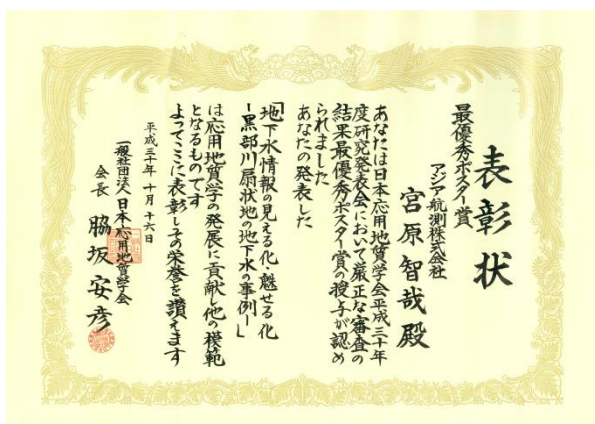 表彰状
最優秀ポスター賞
アジア航測株式会社
宮原智哉殿
あなたは日本応用地質学会平成三十年
度研究発表会において厳正な審査の
結果最優秀ポスター賞の授与が認め
られました
あなたの発表した
「地下水情報の見える化・魅せる化
ー黒部川扇状地の地下水の事例ー」
は応用地質学の発展に貢献し他の模範
となるものです
よってここに表彰しその栄誉を讃えます
平成三十年十月十六日
一般社団法人日本応用地質学会
会長 脇坂安彦